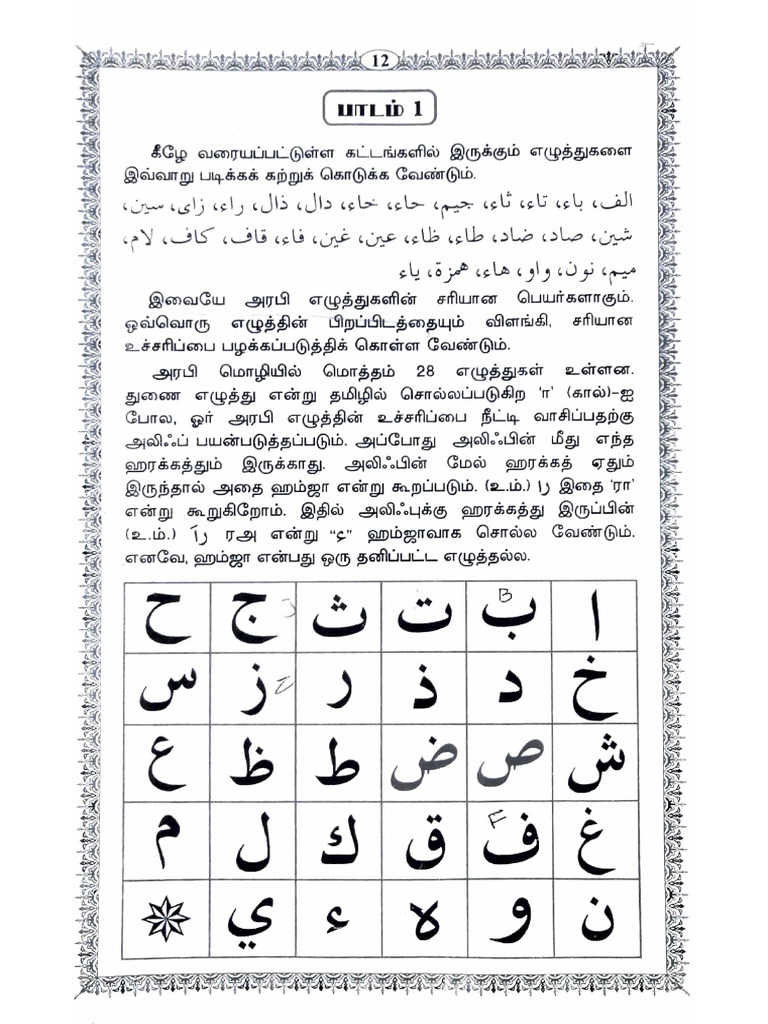 12
பாடம் 1
கீழே வரையப்பட்டுள்ள கட்டங்களில் இருக்கும் எழுத்துகளை
இவ்வாறு படிக்கக் கற்றுக் கொடுக்க வேண்டும்.
الف، باء، تاء، ثاء، جيم، حاء، خاء، دال، ذال، راء، زاى، سين،
شين، صاد، ضاد، طاء، ظاء، عين، غين، فاء، قاف، كاف، لام،
ميم، نون، واو، هاء، همزة، ياء
இவையே அரபி எழுத்துகளின் சரியான பெயர்களாகும்.
ஒவ்வொரு எழுத்தின் பிறப்பிடத்தையும் விளங்கி, சரியான
உச்சரிப்பை பழக்கப்படுத்திக் கொள்ள வேண்டும்.
அரபி மொழியில் மொத்தம் 28 எழுத்துகள் உள்ளன.
துணை எழுத்து என்று தமிழில் சொல்லப்படுகிற ‘ா’ (கால்)-ஐ
போல, ஓர் அரபி எழுத்தின் உச்சரிப்பை நீட்டி வாசிப்பதற்கு
அலிஃப் பயன்படுத்தப்படும். அப்போது அலிஃபின் மீது எந்த
ஹரக்கத்தும் இருக்காது. அலிஃபின் மேல் ஹரக்கத் ஏதும்
இருந்தால் அதை ஹம்ஜா என்று கூறப்படும். (உ.ம்.) رَا இதை ‘ரா’
என்று கூறுகிறோம். இதில் அலிஃபுக்கு ஹரக்கத்து இருப்பின்
(உ.ம்.) رَاَ ரஅ என்று “ء” ஹம்ஜாவாக சொல்ல வேண்டும்.
எனவே, ஹம்ஜா என்பது ஒரு தனிப்பட்ட எழுத்தல்ல.
ا ب B ت ث ج ح
خ د ذ ر ز س
ش ص ض ط ظ ع
غ ف F ق ك ل م
ن و ه ء ي